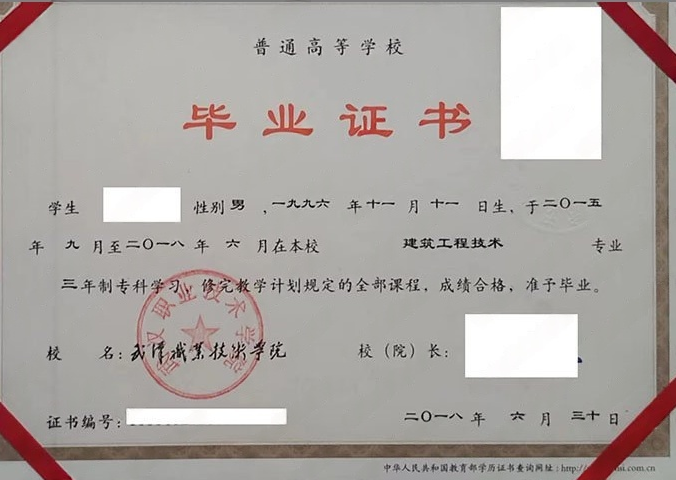 普通高等学校
毕业证书
学生 性别 男 ，一九九六 年 十一 月 十一 日生，于二〇一五
年 九 月至二〇一八 年 六 月在本校 建筑工程技术 专业
三 年制专科学习，修完教学计划规定的全部课程，成绩合格，准予毕业。
武汉职业技术学院
校 名：武汉职业技术学院 校（院）长：
证书编号： 二〇一八 年 六 月 三十 日
中华人民共和国教育部学历证书查询网址：http://